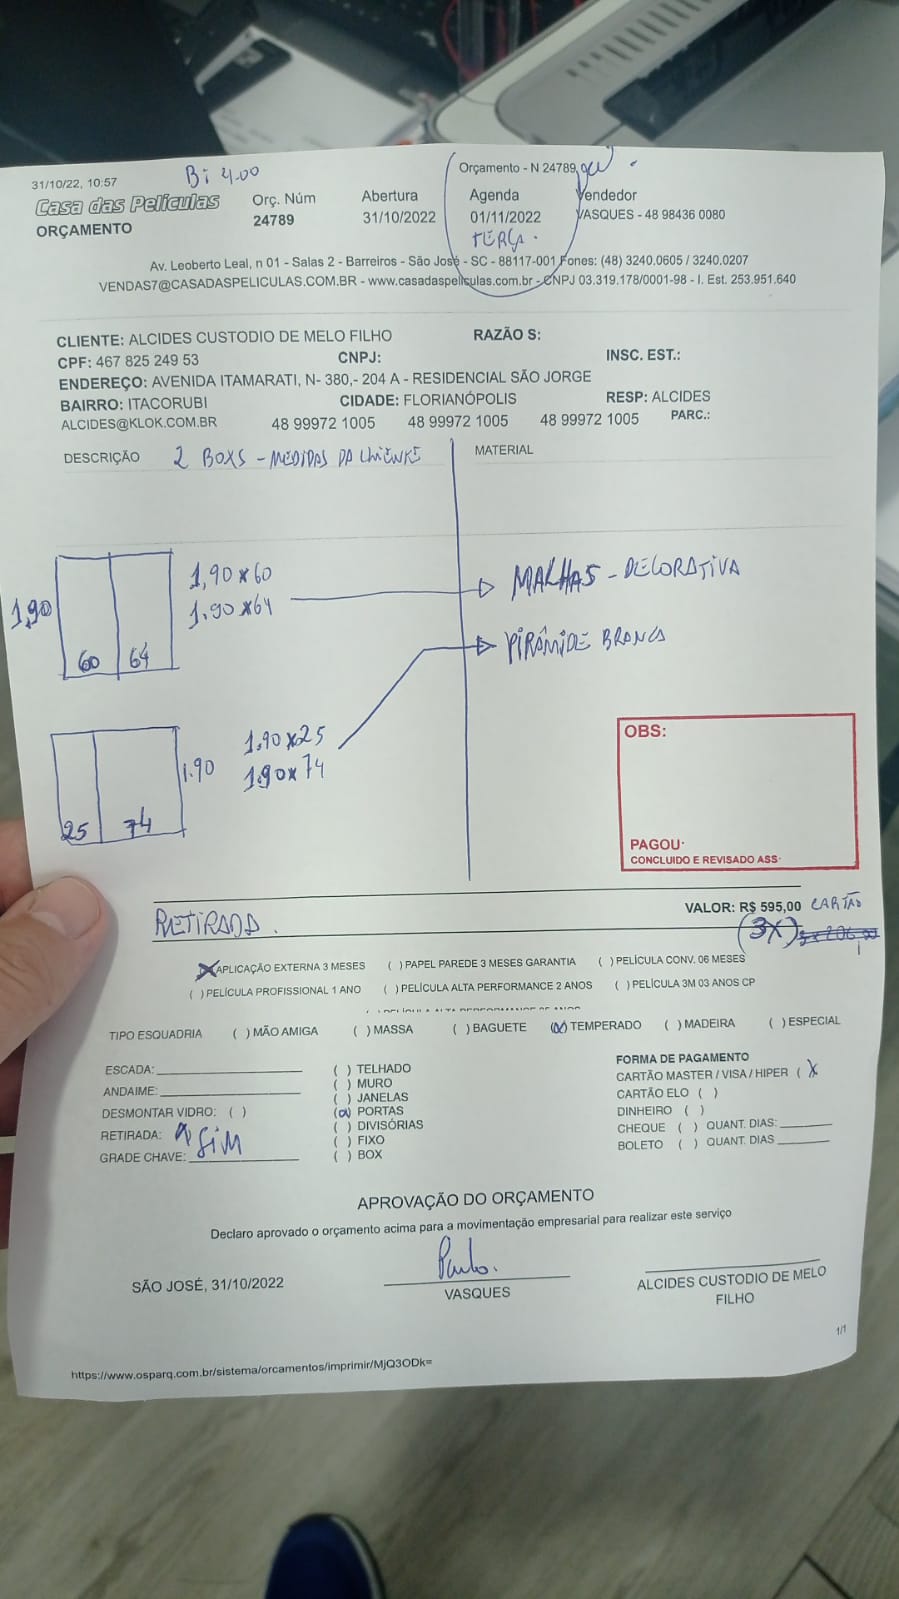 31/10/22, 10:57
Bi 4.00
Orçamento - N 24789
Casa das Películas
ORÇAMENTO
Orç. Núm
24789
Abertura
31/10/2022
Agenda
01/11/2022
TERÇA.
Vendedor
VASQUES - 48 98436 0080
Av. Leoberto Leal, n 01 - Salas 2 - Barreiros - São José - SC - 88117-001 Fones: (48) 3240.0605 / 3240.0207
VENDAS7@CASADASPELICULAS.COM.BR - www.casadaspeliculas.com.br - CNPJ 03.319.178/0001-98 - I. Est. 253.951.640
CLIENTE: ALCIDES CUSTODIO DE MELO FILHO RAZÃO S:
CPF: 467 825 249 53 CNPJ: INSC. EST.:
ENDEREÇO: AVENIDA ITAMARATI, N- 380,- 204 A - RESIDENCIAL SÃO JORGE
BAIRRO: ITACORUBI CIDADE: FLORIANÓPOLIS RESP: ALCIDES
ALCIDES@KLOK.COM.BR 48 99972 1005 48 99972 1005 48 99972 1005 PARC.:
DESCRIÇÃO 2 BOXS - MEDIDAS DA CLIENTE MATERIAL
1,90 60 64
1,90 x 60
1.90 x 64
MALHAS - DECORATIVA
PIRÂMIDE BRANCA
25 74 1.90
1.90 x 25
1.90 x 74
OBS:
PAGOU:
CONCLUIDO E REVISADO ASS:
VALOR: R$ 595,00 CARTÃO
RETIRADA.
(3X) 3x 206,00
APLICAÇÃO EXTERNA 3 MESES ( ) PAPEL PAREDE 3 MESES GARANTIA ( ) PELÍCULA CONV. 06 MESES
( ) PELÍCULA PROFISSIONAL 1 ANO ( ) PELÍCULA ALTA PERFORMANCE 2 ANOS ( ) PELÍCULA 3M 03 ANOS CP
TIPO ESQUADRIA ( ) MÃO AMIGA ( ) MASSA ( ) BAGUETE (X) TEMPERADO ( ) MADEIRA ( ) ESPECIAL
ESCADA:
ANDAIME:
DESMONTAR VIDRO: ( )
RETIRADA: SIM
GRADE CHAVE:
( ) TELHADO
( ) MURO
( ) JANELAS
(X) PORTAS
( ) DIVISÓRIAS
( ) FIXO
( ) BOX
FORMA DE PAGAMENTO
CARTÃO MASTER / VISA / HIPER ( X
CARTÃO ELO ( )
DINHEIRO ( )
CHEQUE ( ) QUANT. DIAS:
BOLETO ( ) QUANT. DIAS
APROVAÇÃO DO ORÇAMENTO
Declaro aprovado o orçamento acima para a movimentação empresarial para realizar este serviço
SÃO JOSÉ, 31/10/2022
Paulo.
VASQUES
ALCIDES CUSTODIO DE MELO
FILHO
1/1
https://www.osparq.com.br/sistema/orcamentos/imprimir/MjQ3ODk=